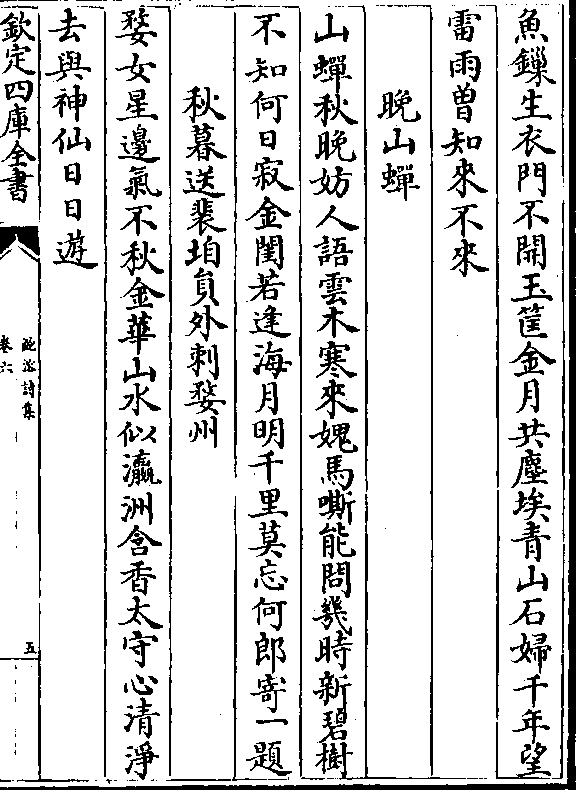 魚鏁生衣門不開玉筐金月共塵埃青山石婦千年望
雷雨曽知來不來
晚山蟬
山蟬秋晚妨人語雲木寒來媿馬嘶能問幾時新碧樹
不知何日寂金閨若逢海月明千里莫忘何郎寄一題
秋暮送裴垍員外刺婺州
婺女星邊氣不秋金華山水似瀛洲含香太守心清淨
去與神仙日日遊
欽定四庫全書
鮑溶詩集
卷六
五